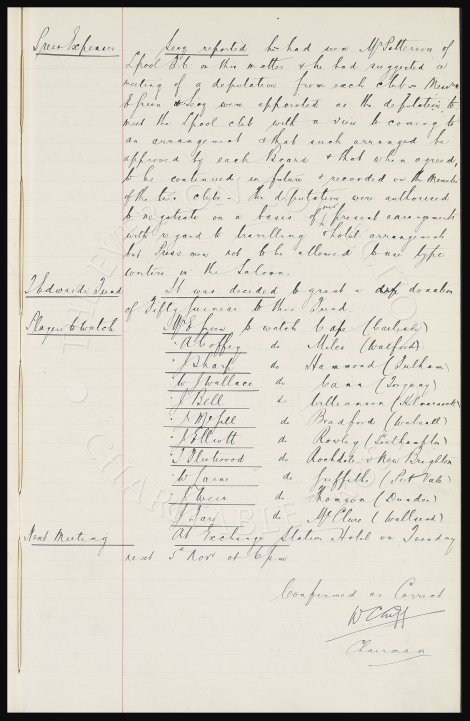 Press Expenses Secy reported he had seen Mr Patterson of
L'pool F.C. on this matter & he had suggested a
meeting of a deputation from each club - Messrs
Green & Secy were appointed as the deputation to
meet the L'pool club with a view to coming to
an arrangement & that such arranged be
approved by each Board & that when agreed,
to be continued in future & recorded on the Minutes
of the two clubs - The deputation were authorised
to negotiate on a basis of our present arrangements
with regard to travelling & hotel arrangements
but Press men not to be allowed to use type
writers in the Saloon.
T Edwards Fund It was decided to grant a donation
of Fifty Guineas to this Fund
Players to Watch Mr E Green to watch Cape (Carlisle)
" A Coffey do Miles (Watford)
" J Sharp do Hammond (Fulham)
" W J Wallace do Cann (Torquay)
" J Bell do Williamson (Kilmarnock)
" do Bradford (Walsall)
" J Elliott do Rowley (Southampton)
" T Fleetwood do Rochdale v New Brighton
" W do Griffiths (Port Vale)
" J Weir do Thomson (Dundee)
" J do McClure (Wallsend)
Next Meeting At Exchange Station Hotel on Tuesday
next 5th Nov at 6 pm
Confirmed as Correct
W C Cuff
Chairman